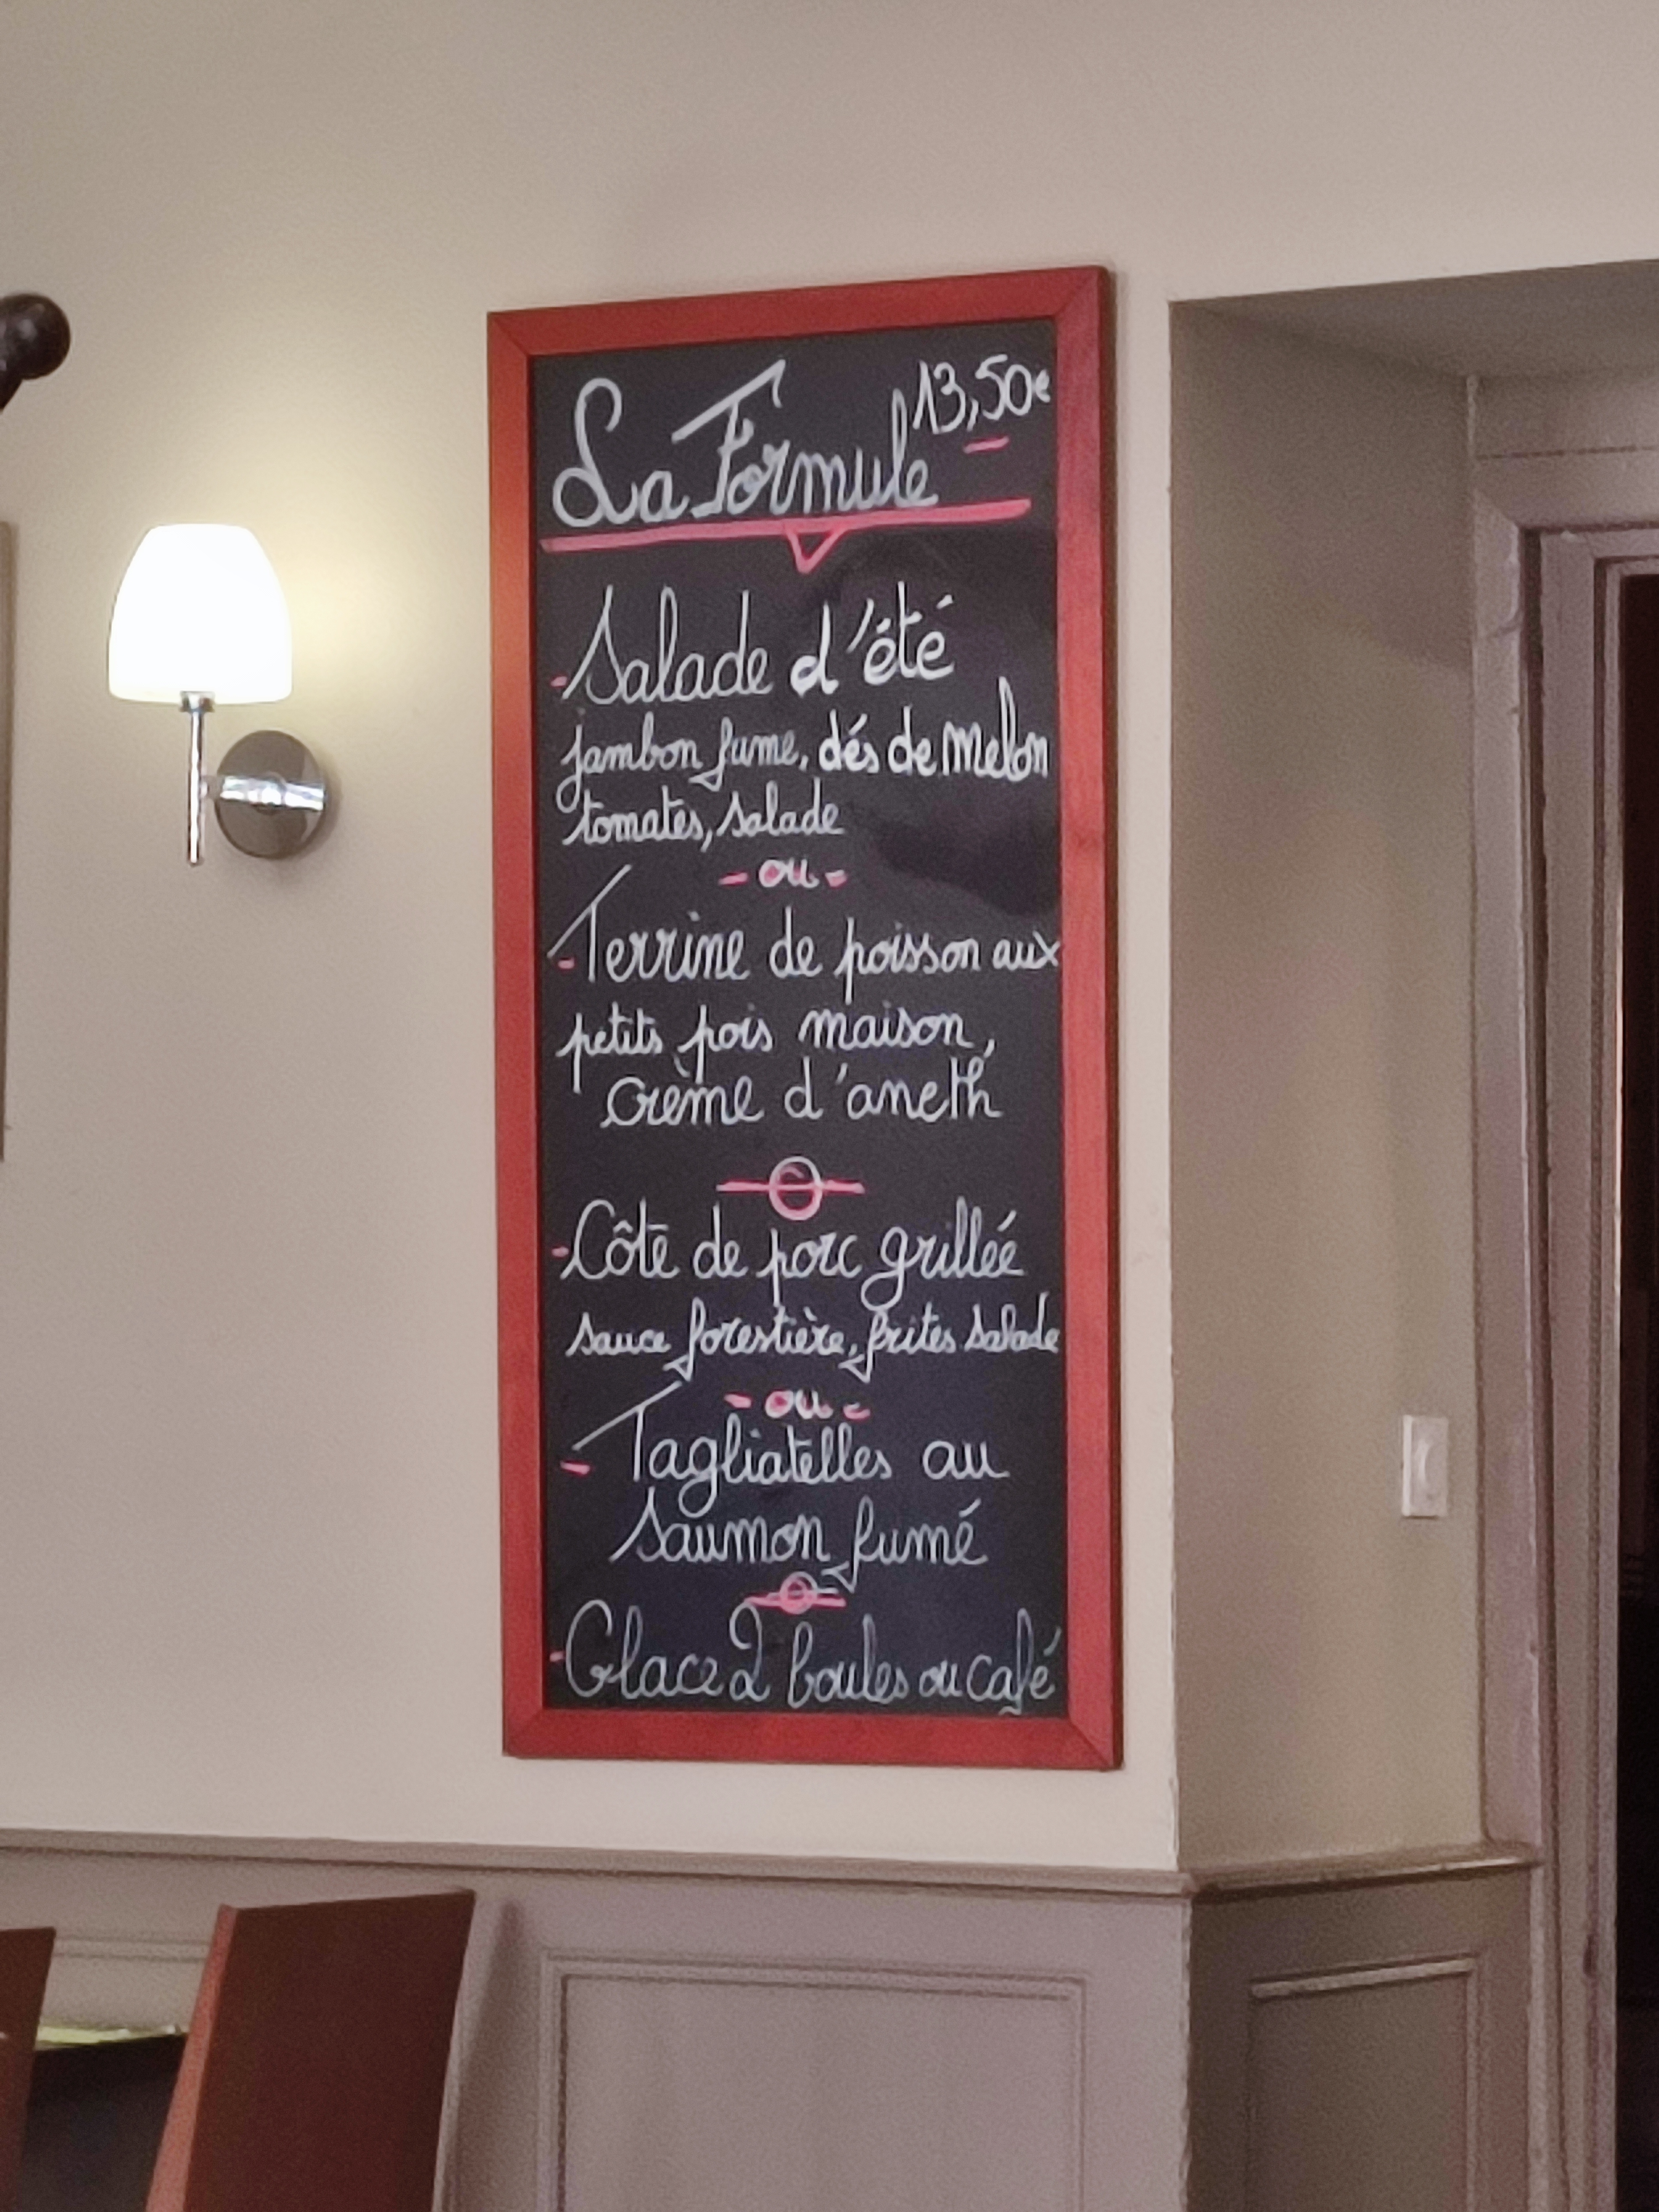 La Formule 13,50€
-Salade d'été
jambon fumé, dés de Melon
tomates, salade
- ou -
-Terrine de poisson aux
petits pois maison,
crème d'aneth
-Côte de porc grillée
sauce forestière, frites salade
- ou -
- Tagliatelles au
saumon fumé
-Glace 2 boules ou café